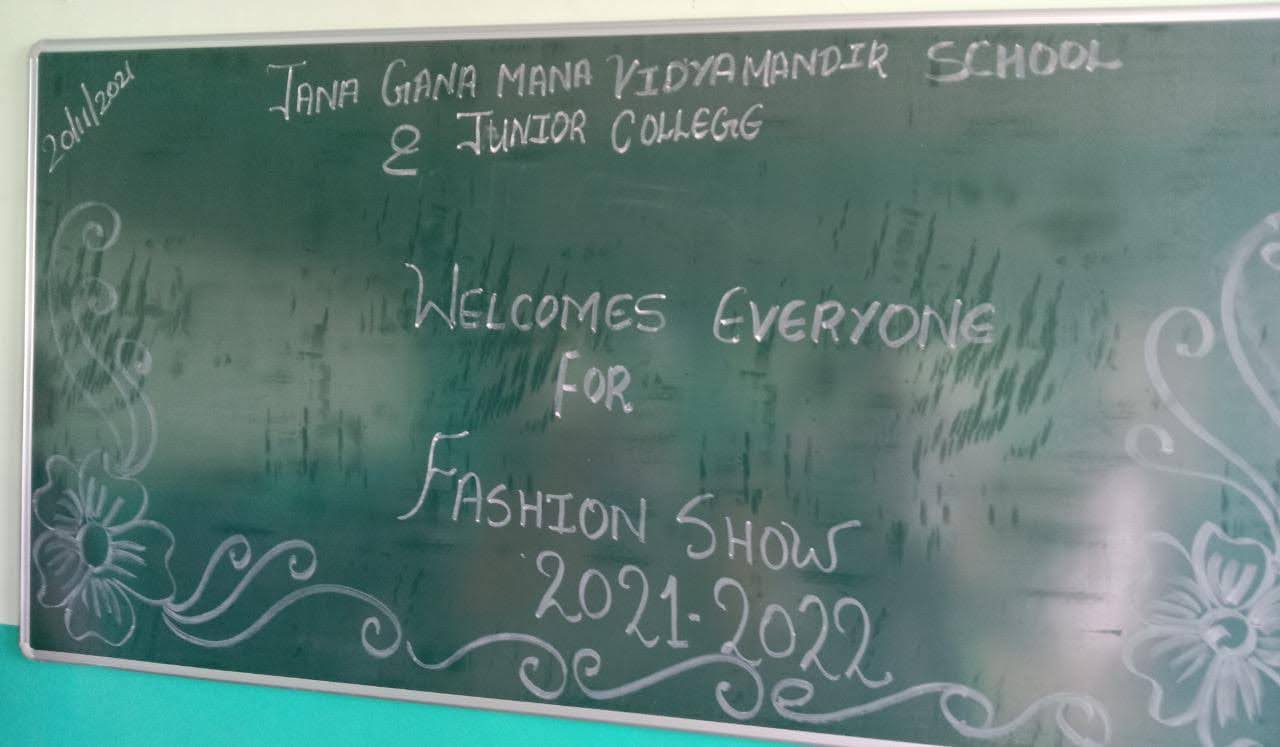 20/11/2021
JANA GANA MANA VIDYAMANDIR SCHOOL
& JUNIOR COLLEGE
WELCOMES EVERYONE
FOR
FASHION SHOW
2021-2022